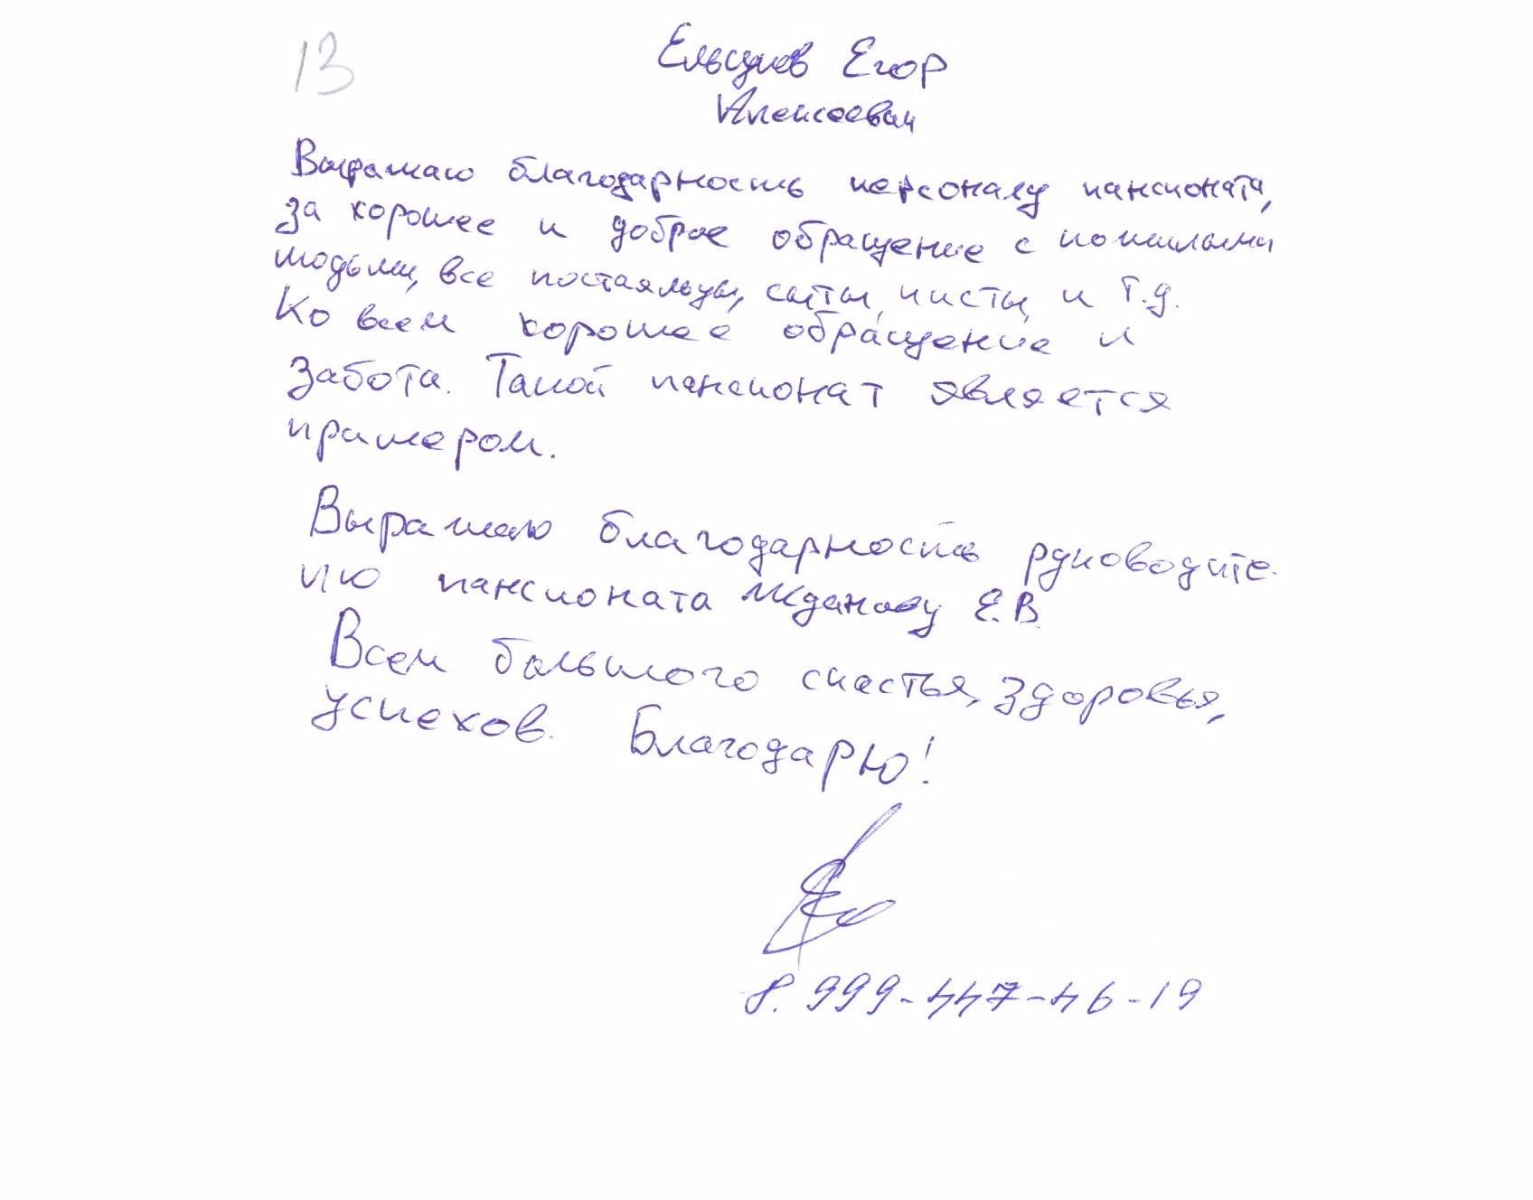 13
Ельцов Егор
Алексеевич
Выражаю благодарность персоналу пансионата,
за хорошее и доброе обращение с пожилыми
людьми, все постояльцы, сыты, чисты, и т.д.
Ко всем хорошее обращение и
забота. Такой пансионат является
примером.
Выражаю благодарность руководите-
лю пансионата Жданову Е.В.
Всем большого счастья, здоровья,
успехов. Благодарю!
8. 999-447-46-19